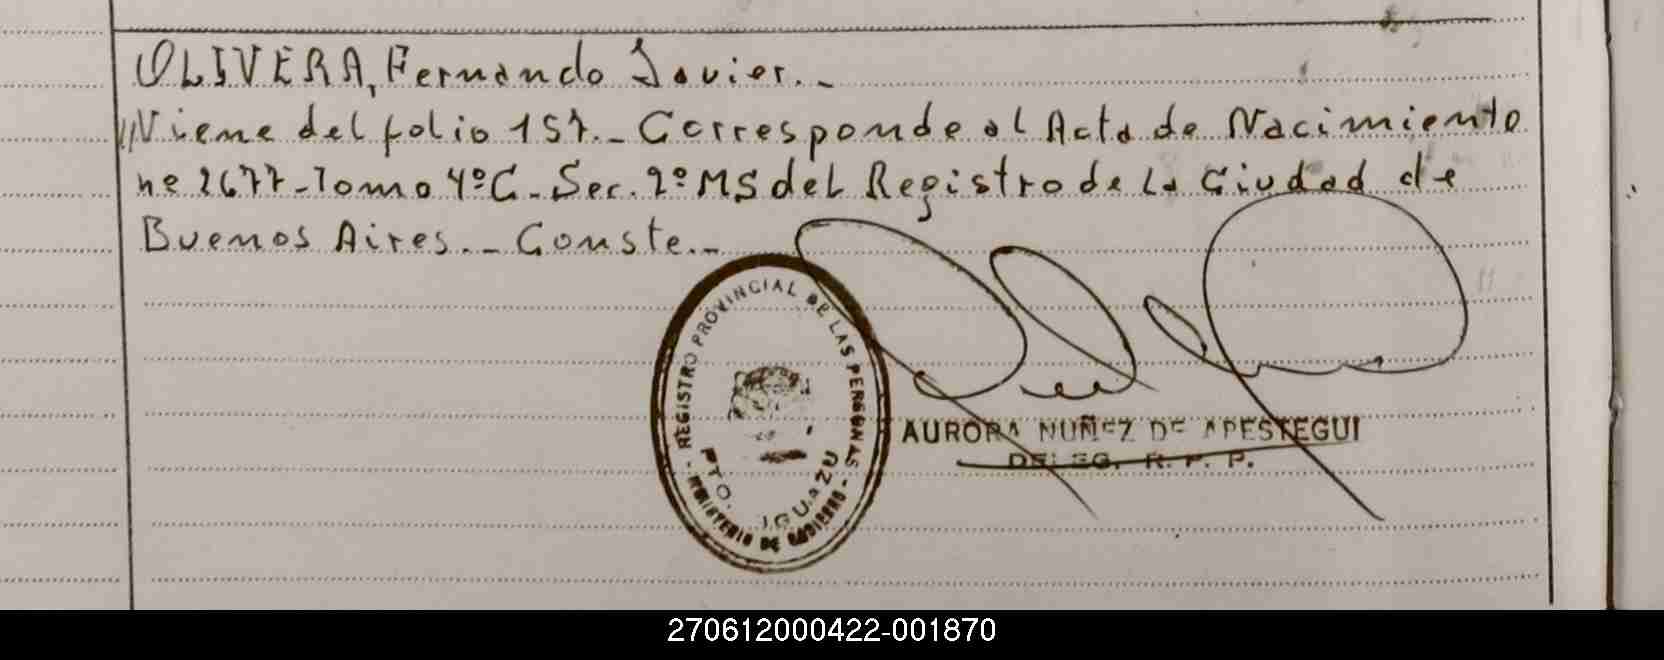 OLIVERA, Fernando Javier._
///Viene del folio 157._ Corresponde al Acta de Nacimiento
nº 2677_Tomo 4ºC_Sec. 2º MS del Registro de la Ciudad de
Buenos Aires._ Conste._
- REGISTRO PROVINCIAL DE LAS PERSONAS -
PTO. IGUAZU
MINISTERIO DE GOBIERNO
AURORA NUÑEZ DE APESTEGUI
DELEG. R. P. P.
270612000422-001870